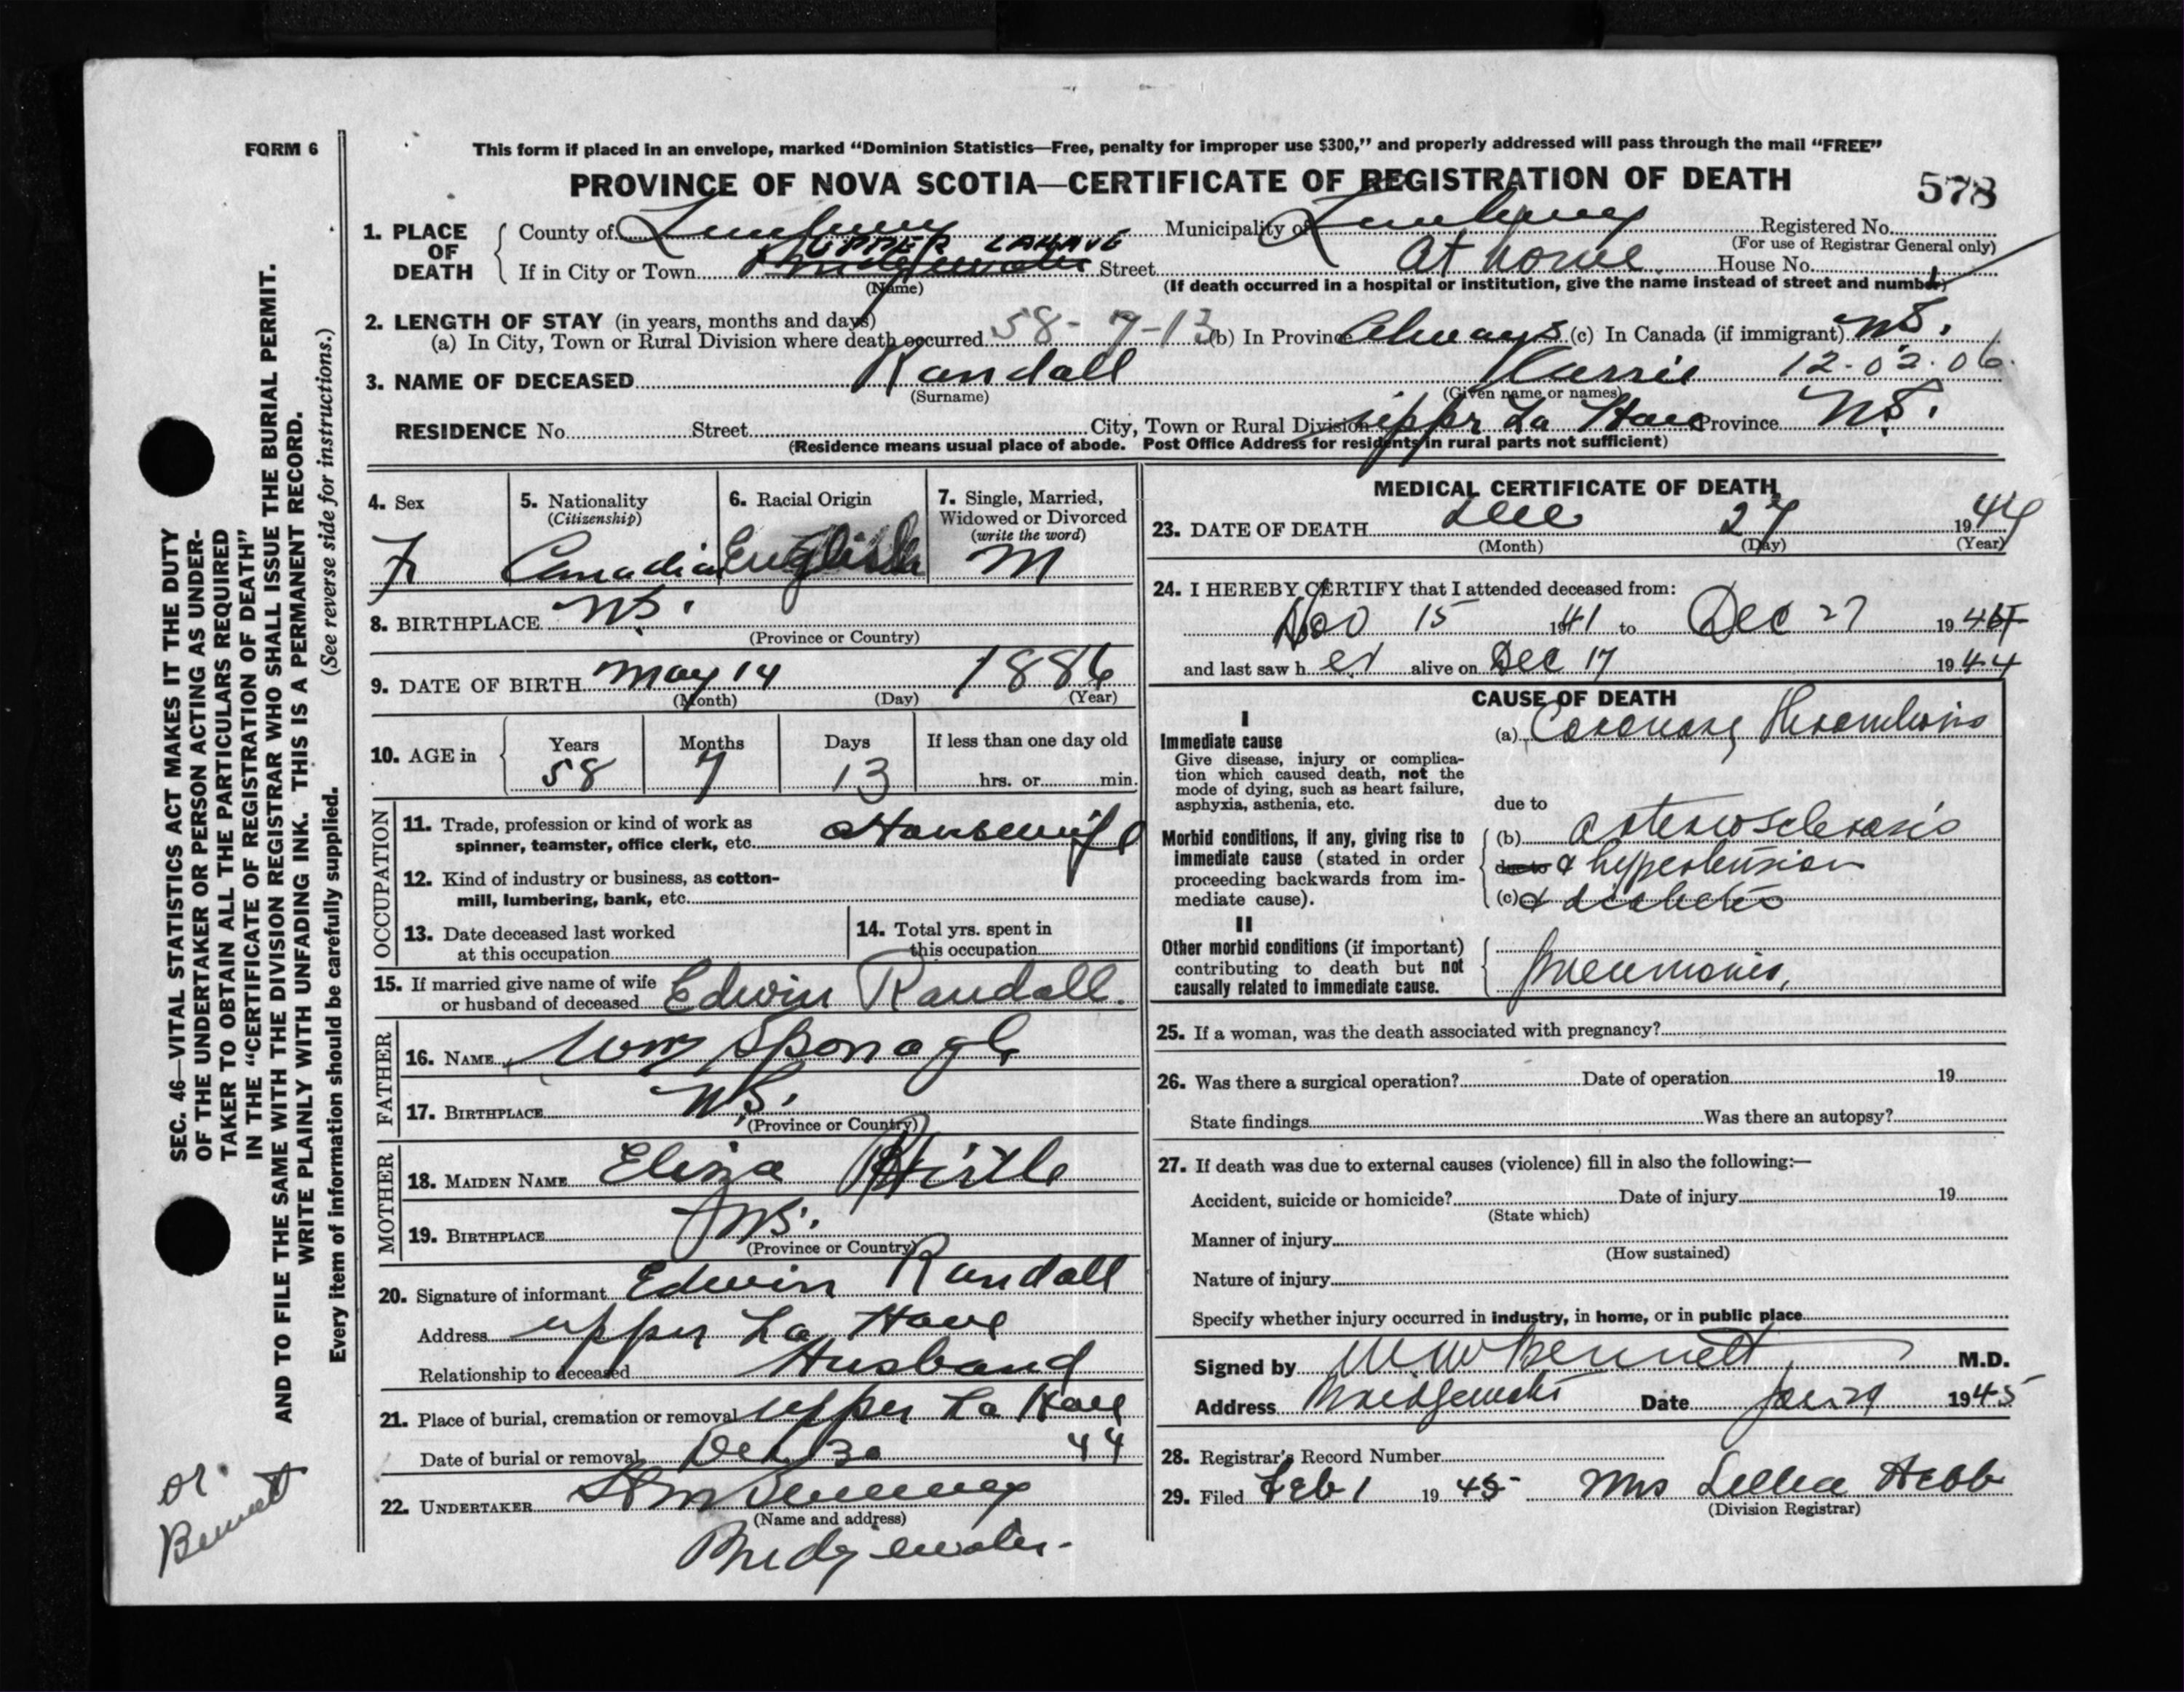 FORM 6
This form if placed in an envelope, marked “Dominion Statistics—Free, penalty for improper use $300,” and properly addressed will pass through the mail “FREE”
PROVINCE OF NOVA SCOTIA—CERTIFICATE OF REGISTRATION OF DEATH
578
1. PLACE OF DEATH
County of Lunenburg Municipality of Lunenburg Registered No.
(For use of Registrar General only)
UPPER LAHAVE
If in City or Town Bridgewater Street At home House No.
(Name)
(If death occurred in a hospital or institution, give the name instead of street and number)
2. LENGTH OF STAY (in years, months and days)
(a) In City, Town or Rural Division where death occurred 58-7-13 (b) In Province Always (c) In Canada (if immigrant) N.S.
3. NAME OF DECEASED Randall 12-02-06
(Surname) (Given name or names)
RESIDENCE No. Street City, Town or Rural Division upper La Have Province N.S.
(Residence means usual place of abode. Post Office Address for residents in rural parts not sufficient)
4. Sex
F
5. Nationality
(Citizenship)
Canadian
6. Racial Origin
English
7. Single, Married,
Widowed or Divorced
(write the word)
M
8. BIRTHPLACE N.S.
(Province or Country)
9. DATE OF BIRTH May 14 1886
(Month) (Day) (Year)
10. AGE in
Years Months Days If less than one day old
58 7 13 hrs. or min.
OCCUPATION
11. Trade, profession or kind of work as
spinner, teamster, office clerk, etc. Housewife
12. Kind of industry or business, as cotton-
mill, lumbering, bank, etc.
13. Date deceased last worked
at this occupation
14. Total yrs. spent in
this occupation
15. If married give name of wife
or husband of deceased Edwin Randall.
FATHER
16. NAME Wm Sponagle
17. BIRTHPLACE N.S.
(Province or Country)
MOTHER
18. MAIDEN NAME Eliza Hirtle
19. BIRTHPLACE N.S.
(Province or Country)
20. Signature of informant Edwin Randall
Address upper La Have
Relationship to deceased Husband
21. Place of burial, cremation or removal upper La Have
Date of burial or removal Dec 30 44
22. UNDERTAKER
(Name and address)
Bridgewater.
MEDICAL CERTIFICATE OF DEATH
23. DATE OF DEATH Dec 27 1944
(Month) (Day) (Year)
24. I HEREBY CERTIFY that I attended deceased from:
Nov 15 1941 to Dec 27 1944
and last saw h er alive on Dec 17 1944
CAUSE OF DEATH
I
Immediate cause
Give disease, injury or complica-
tion which caused death, not the
mode of dying, such as heart failure,
asphyxia, asthenia, etc.
(a) Coronary Thrombosis
due to
Morbid conditions, if any, giving rise to
immediate cause (stated in order
proceeding backwards from im-
mediate cause).
(b) arteriosclerosis
due to & hypertension
(c) & diabetes
II
Other morbid conditions (if important)
contributing to death but not
causally related to immediate cause.
Pneumonia,
25. If a woman, was the death associated with pregnancy?
26. Was there a surgical operation? Date of operation 19
State findings Was there an autopsy?
27. If death was due to external causes (violence) fill in also the following:—
Accident, suicide or homicide? Date of injury 19
(State which)
Manner of injury
(How sustained)
Nature of injury
Specify whether injury occurred in industry, in home, or in public place
Signed by Bennett M.D.
Address Bridgewater Date Jan 29 1945
28. Registrar's Record Number
29. Filed Feb 1 1945 Mrs Hebb
(Division Registrar)
SEC. 46—VITAL STATISTICS ACT MAKES IT THE DUTY
OF THE UNDERTAKER OR PERSON ACTING AS UNDER-
TAKER TO OBTAIN ALL THE PARTICULARS REQUIRED
IN THE “CERTIFICATE OF REGISTRATION OF DEATH”
AND TO FILE THE SAME WITH THE DIVISION REGISTRAR WHO SHALL ISSUE THE BURIAL PERMIT.
WRITE PLAINLY WITH UNFADING INK. THIS IS A PERMANENT RECORD.
Every item of information should be carefully supplied. (See reverse side for instructions.)
Bennett